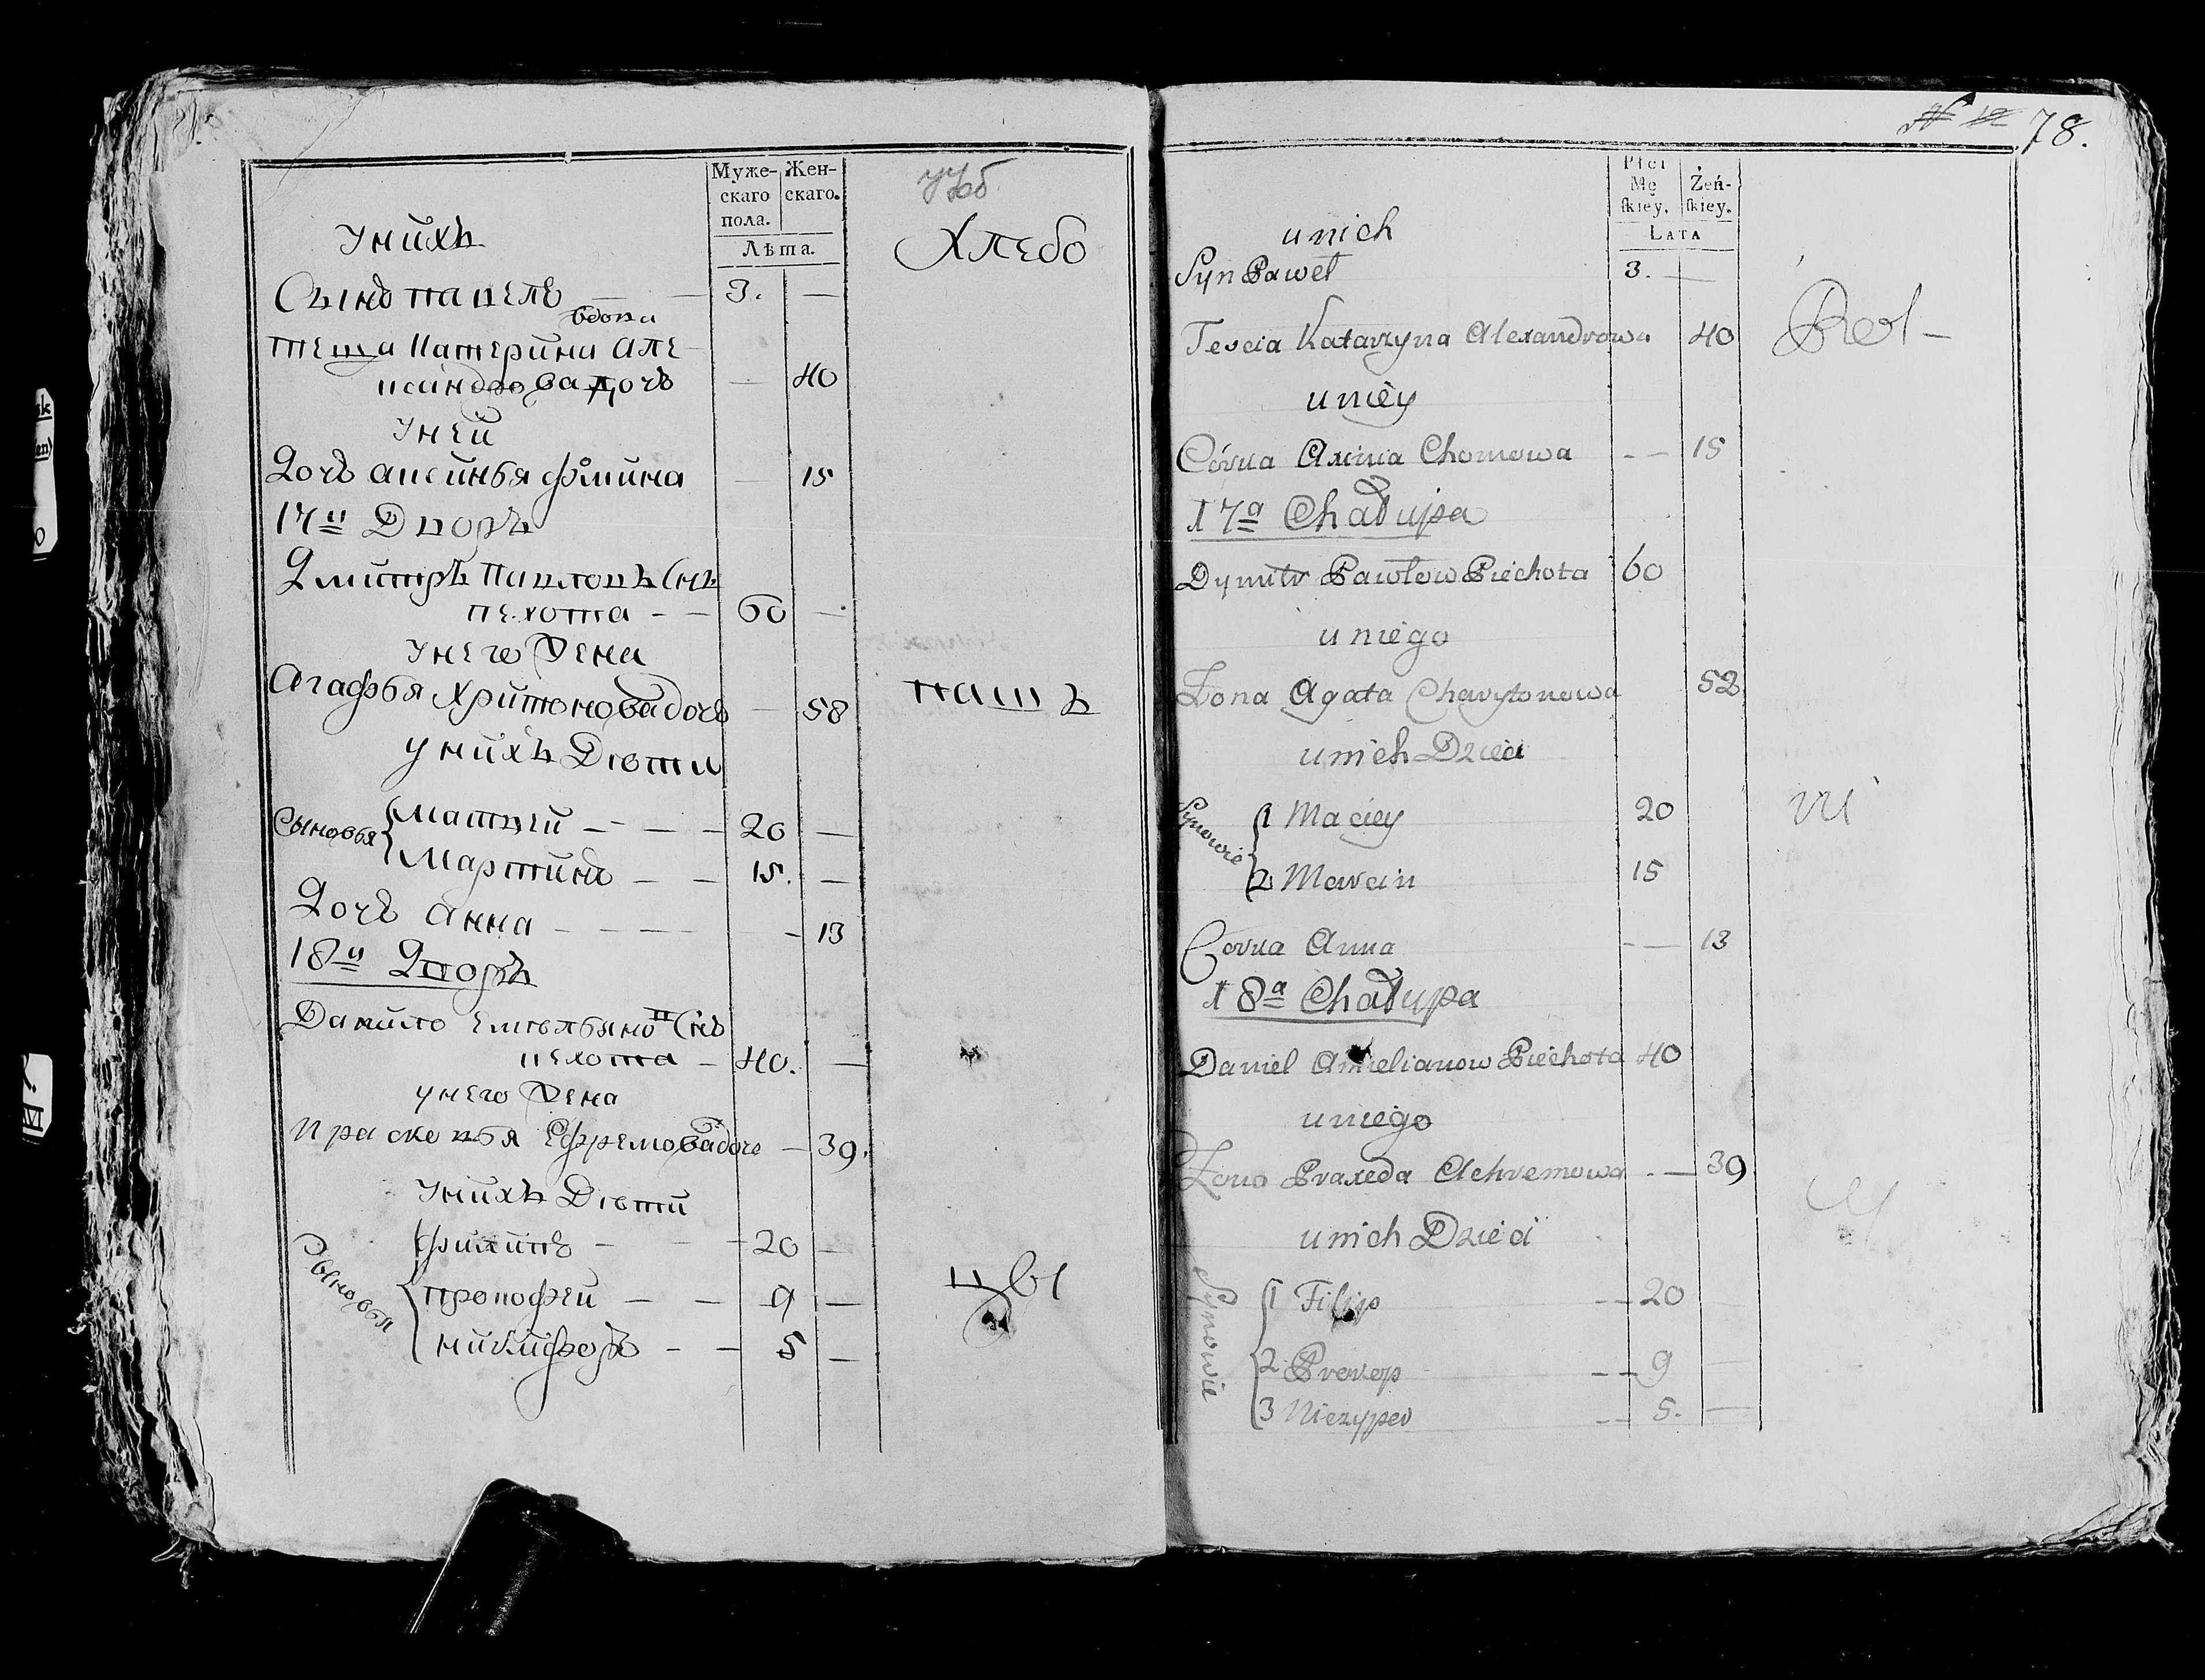 Муже-
скаго
пола.
Жен-
скаго.
Лѣта.
унихъ
Сынъ павелъ 3. —
вдова
теща катерина але
ксандрова дочь — 40
уней
Дочь аксинья фомина — 15
17й Дворъ
Дмитръ павловъ Снъ
пехота — — 60 —
унего жена
Агафья Хритоновадочь — 58
унихъ Дѣти
Сыновья
Матвей — — — 20 —
Мартинъ — — 15. —
Дочь анна — — — — 13
18й Дворъ
Данило емельяновъ Снъ
пехота — 40. —
унего жена
прасковья Ефремовадоче — 39.
унихъ Дѣти
Сыновья
филипъ — — 20 —
прокофей — — 9 —
никифоръ — — 5 —
Хлебо
паш
цы
№ 12
78.
Płci
Mę
ſkiey.
Żeń-
ſkiey.
LATA
unich
Syn Paweł 3. —
Tescia Katarzyna Alexandrowa 40
uniey
Córka Axinia Chomowa - — 15
17a Chałupa
Dymitr Pawłow Piechota 60
uniego
Żona Agata Charytonowa 52
unich Dzieci
Synowie
1 Maciey 20
2 Marcin 15
Corka Anna - — 13
18a Chałupa
Daniel Amelianow Piechota 40
uniego
Żona Praxeda Achremowa - — 39
unich Dzieci
Synowie
1 Filip - — 20
2 Prokop - — 9
3 Niczyper - — 5. —
Rol-
ni
cy